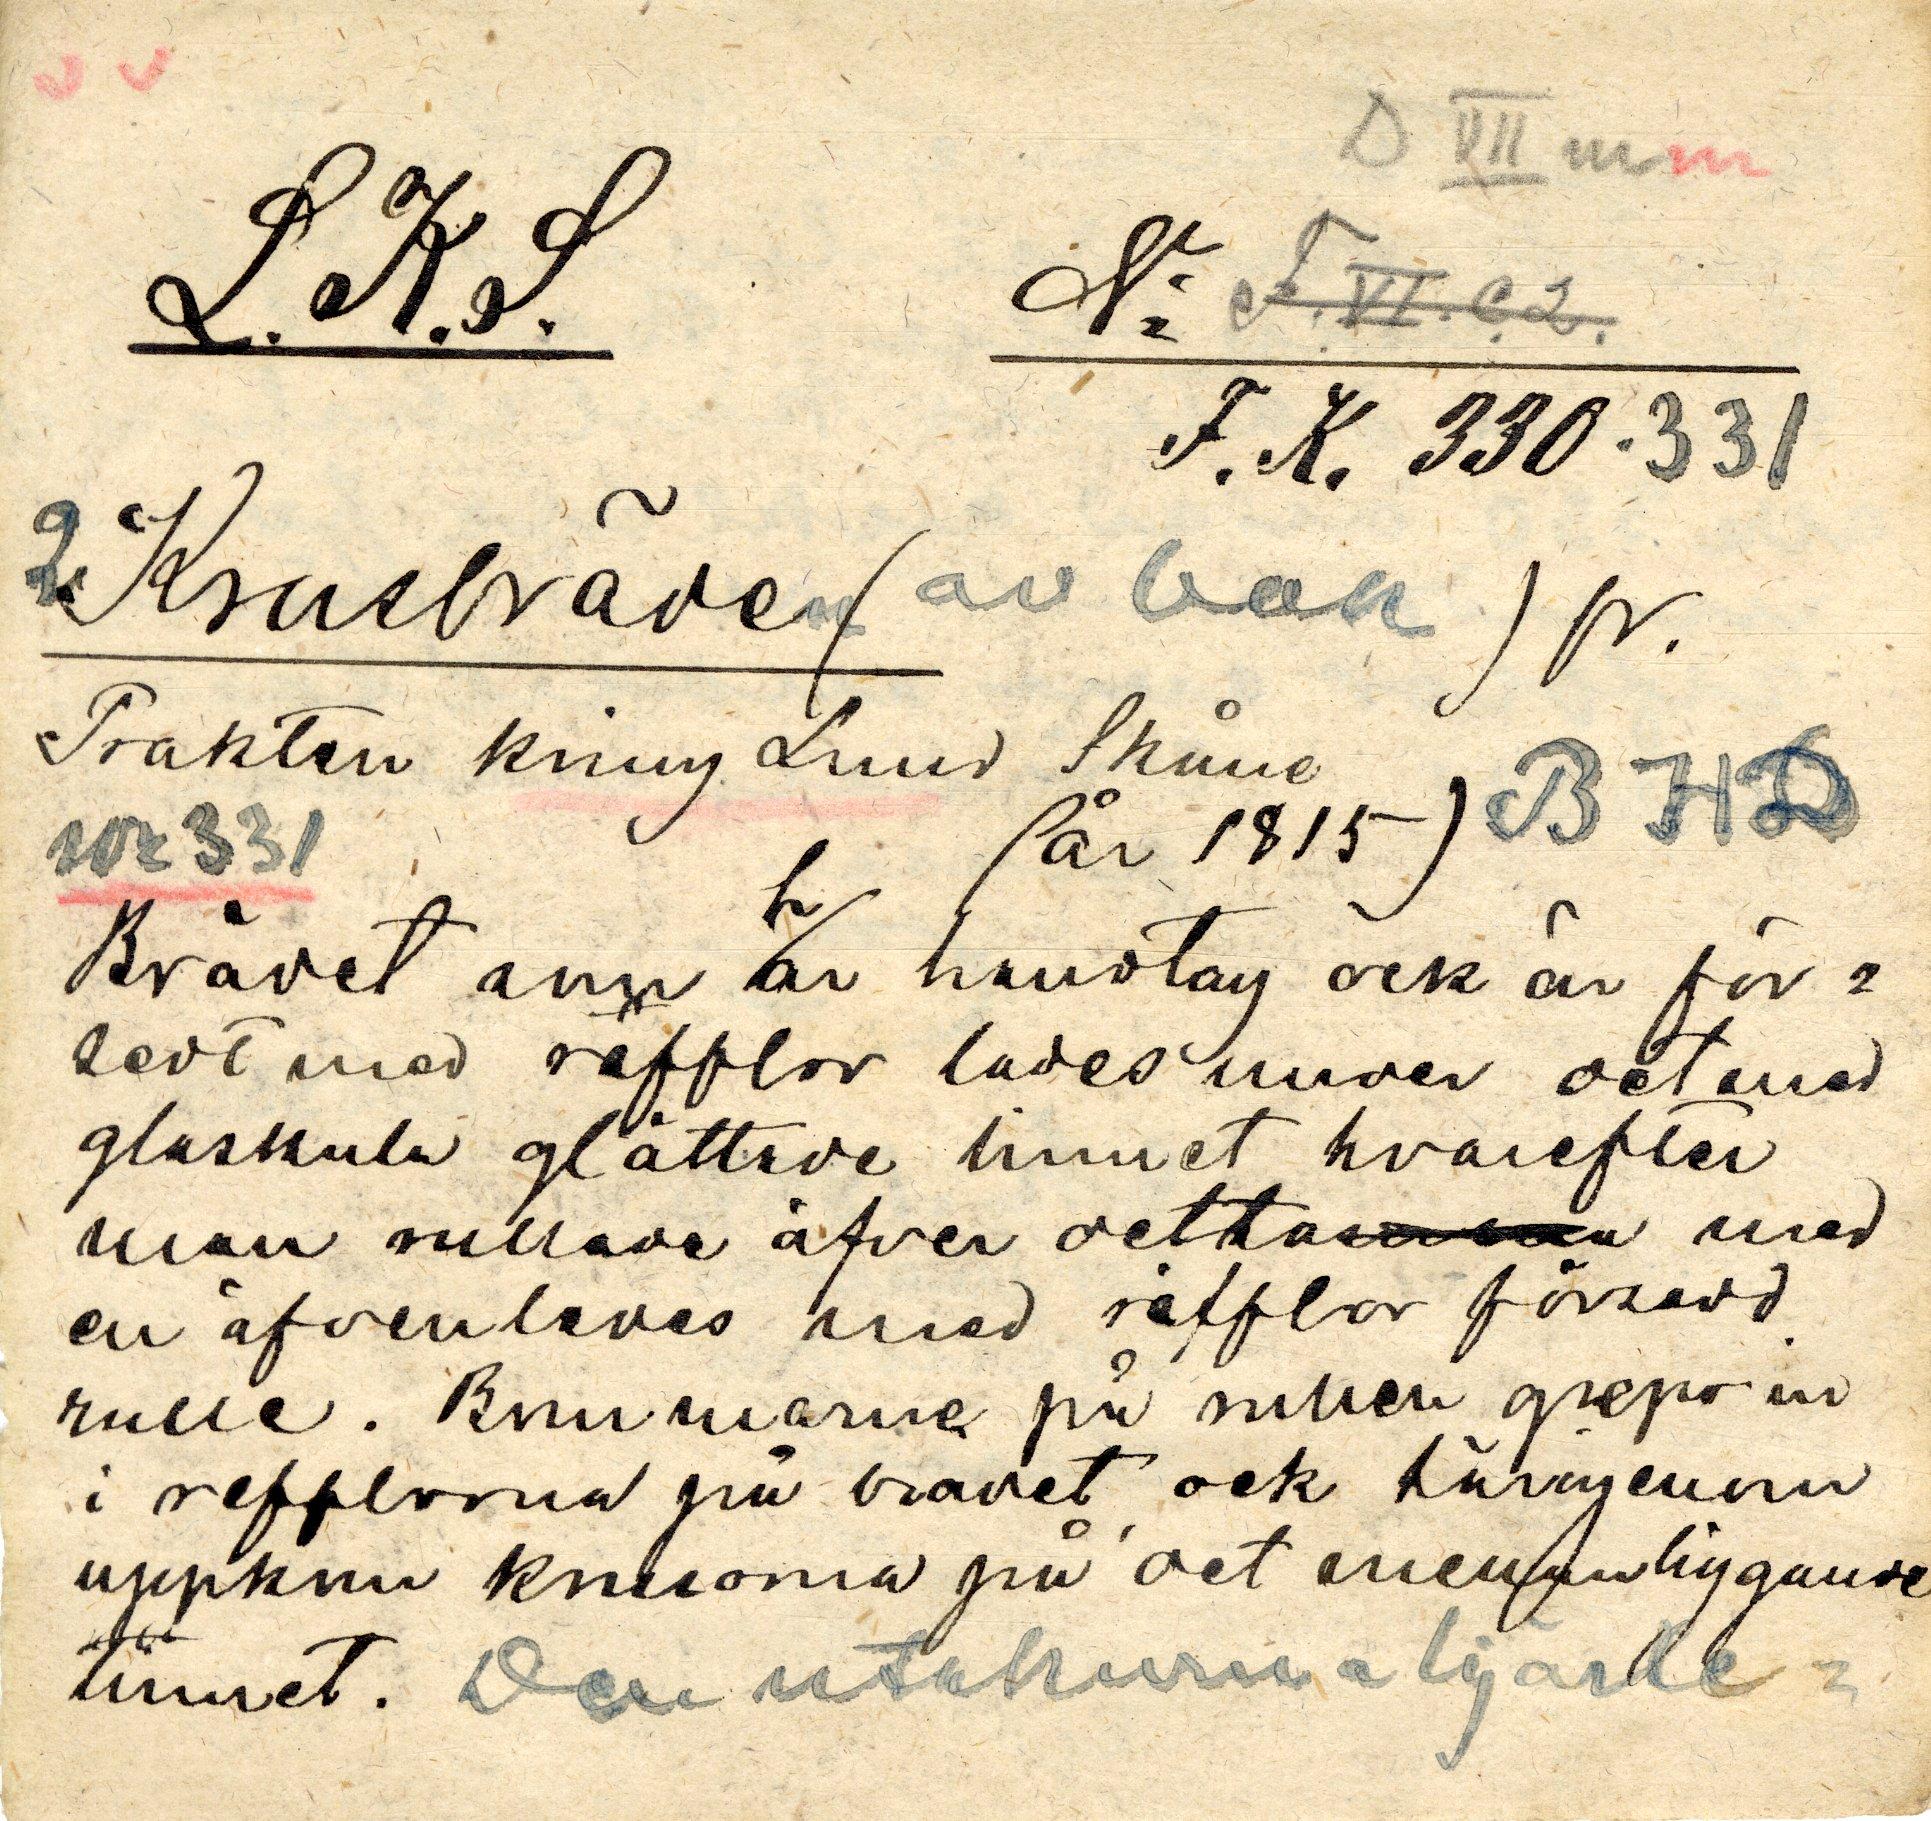 D VII m m
L.K.S.
Nr F. VI. c 2.
F.K. 330-331
2 Krusbräden (av bok) fr.
Trakten kring Lund Skåne
nr 331 (år 1815) BHD
Brädet som har handtag ock är för=
sedt med räfflor lades under det med
glaskula glättade linnet hvarefter
man rullade äfver detta med
en äfvenledes med räfflor försedd
rulle. Bommarne på rullen grepo in
i refflorna på brädet ock härigenom
uppkom krusorna på det mellanliggande
linnet. Den utskurna bjärke=